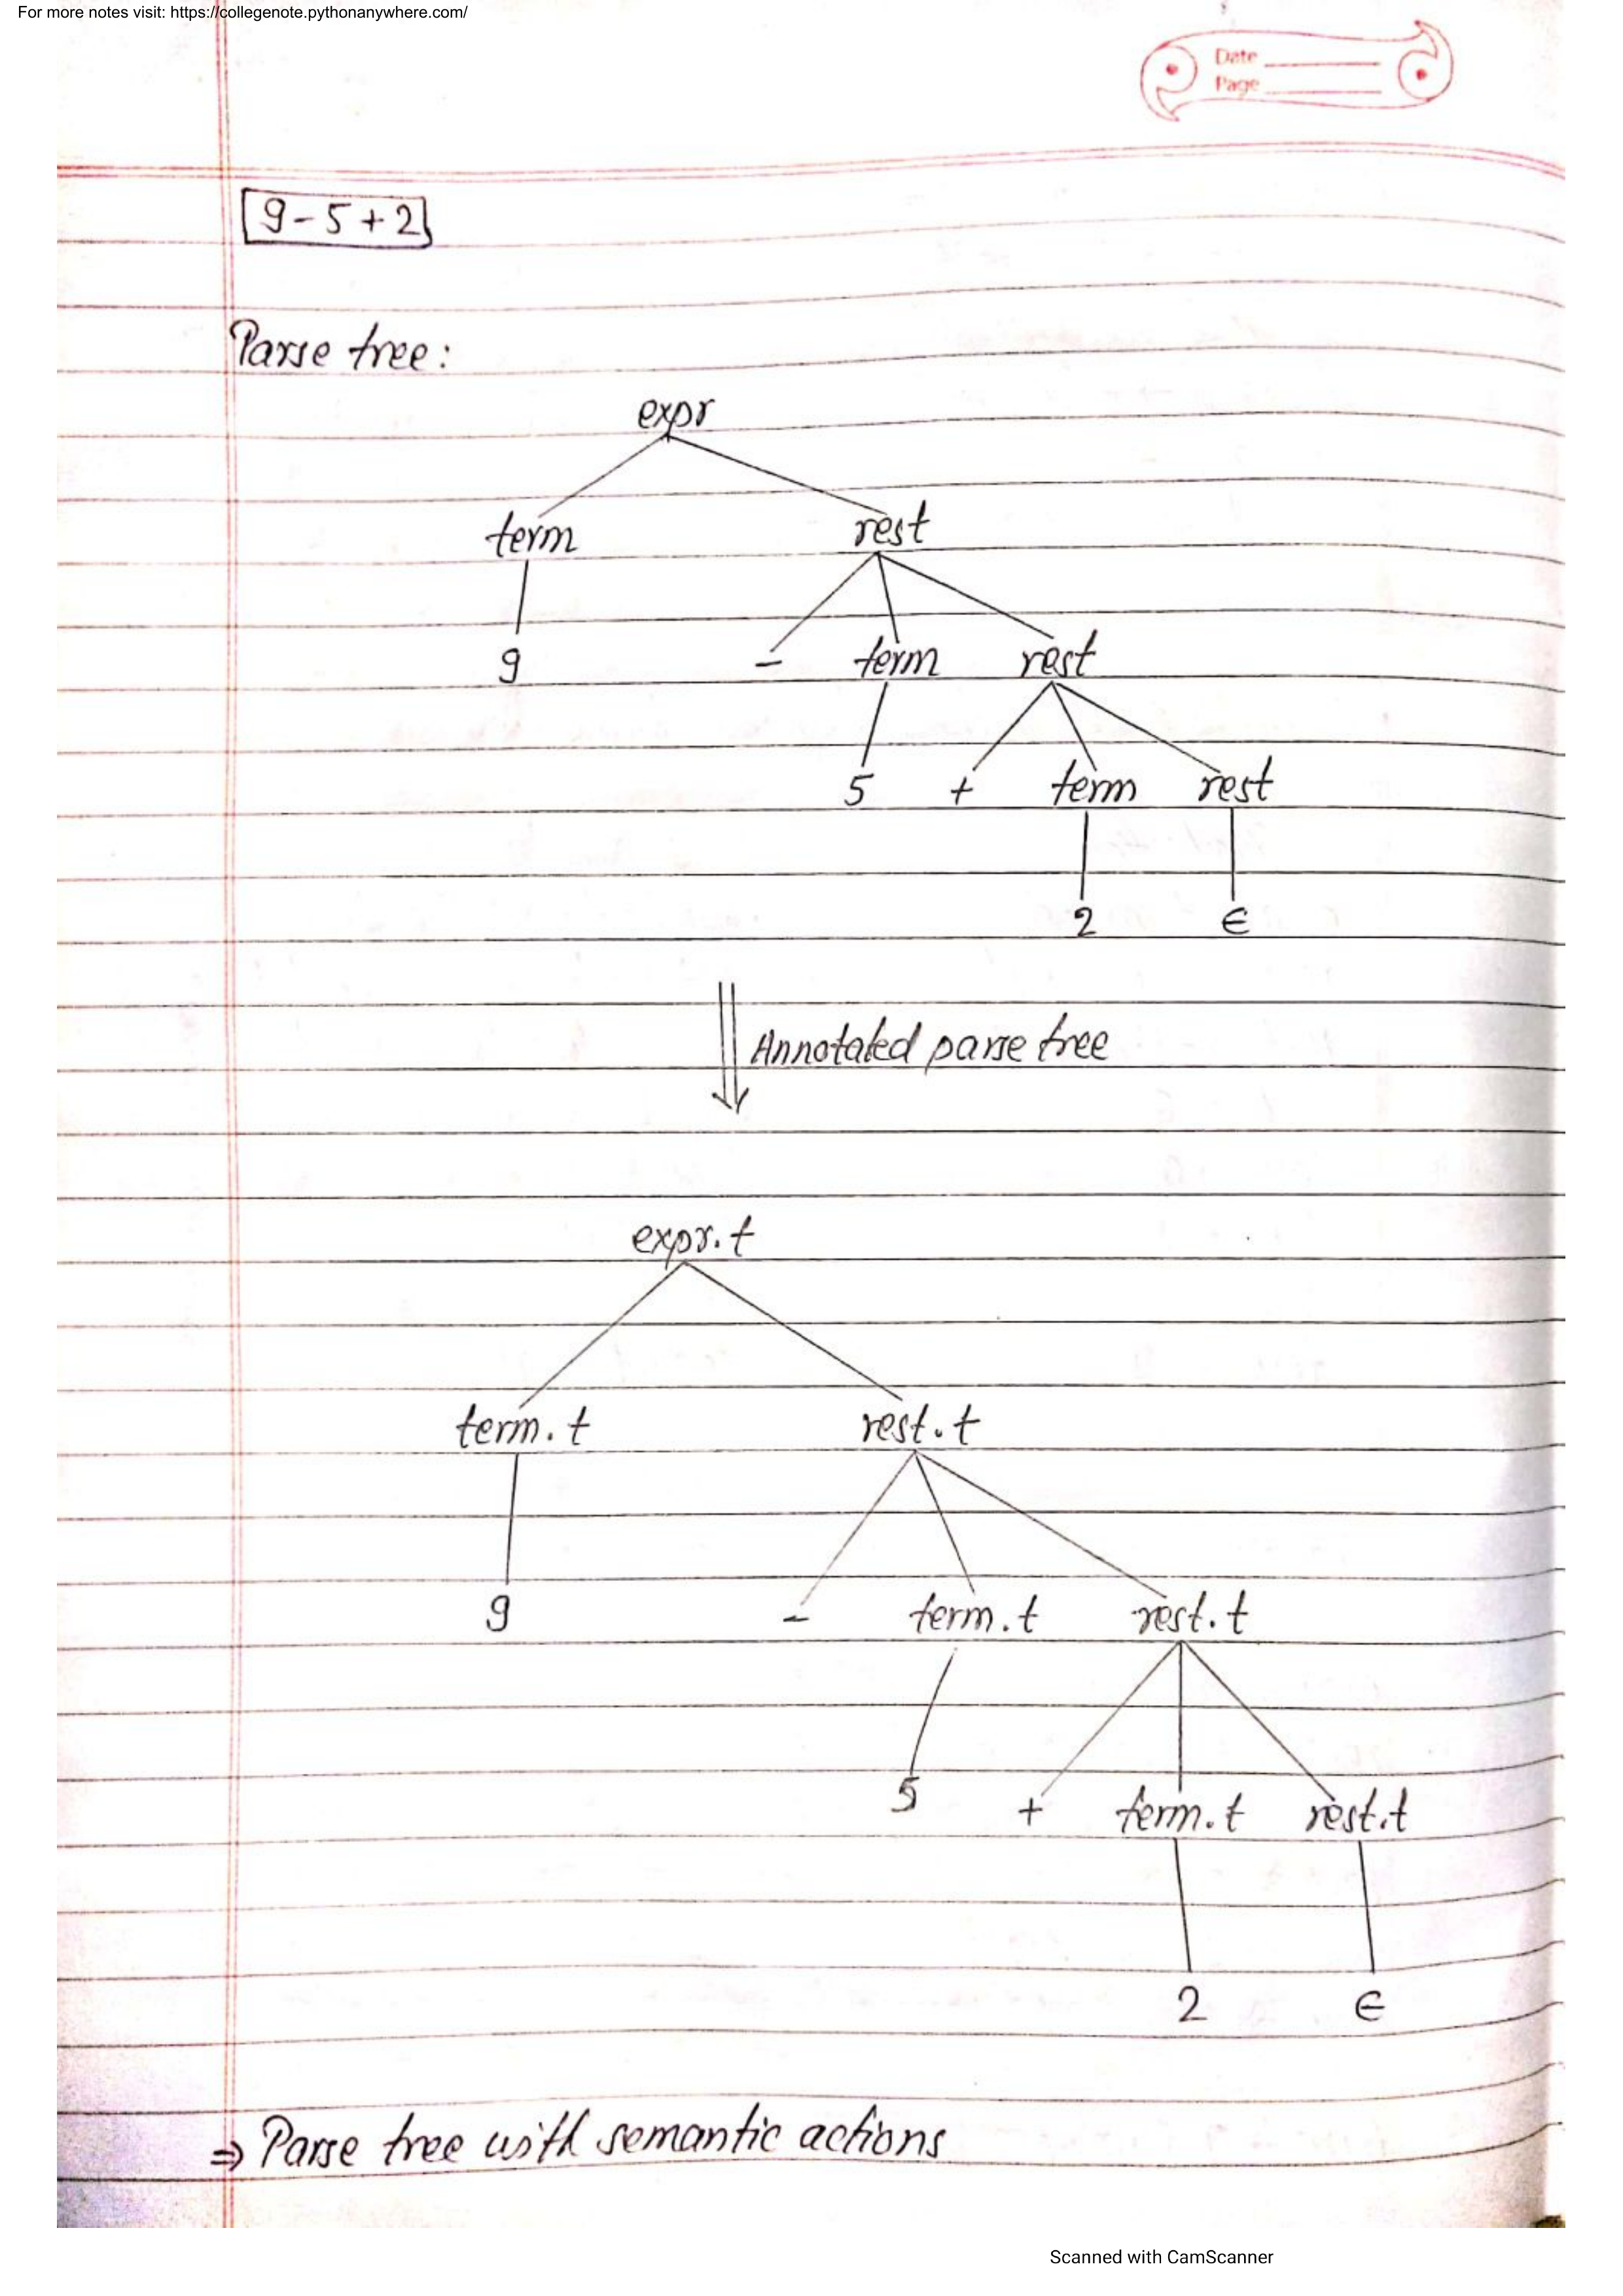 For more notes visit: https://collegenote.pythonanywhere.com/
Date
Page
9-5+2
Parse tree:
expr
term rest
9 - term rest
5 + term rest
2 ϵ
Annotated parse tree
expr.t
term.t rest.t
9 - term.t rest.t
5 + term.t rest.t
2 ϵ
⇒ Parse tree with semantic actions
Scanned with CamScanner